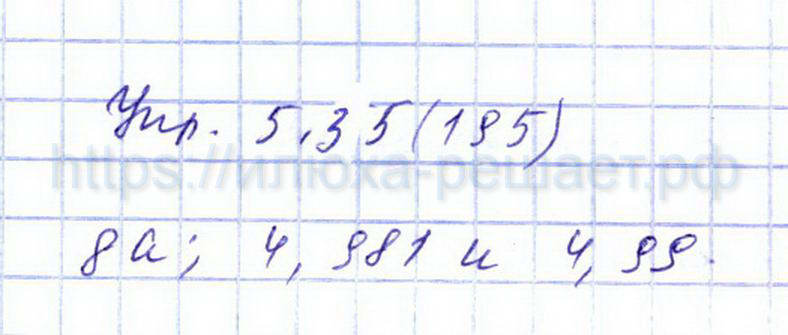 Упр. 5.35(195)
https://илюха-решает.рф
да; 4,981 и 4,99.